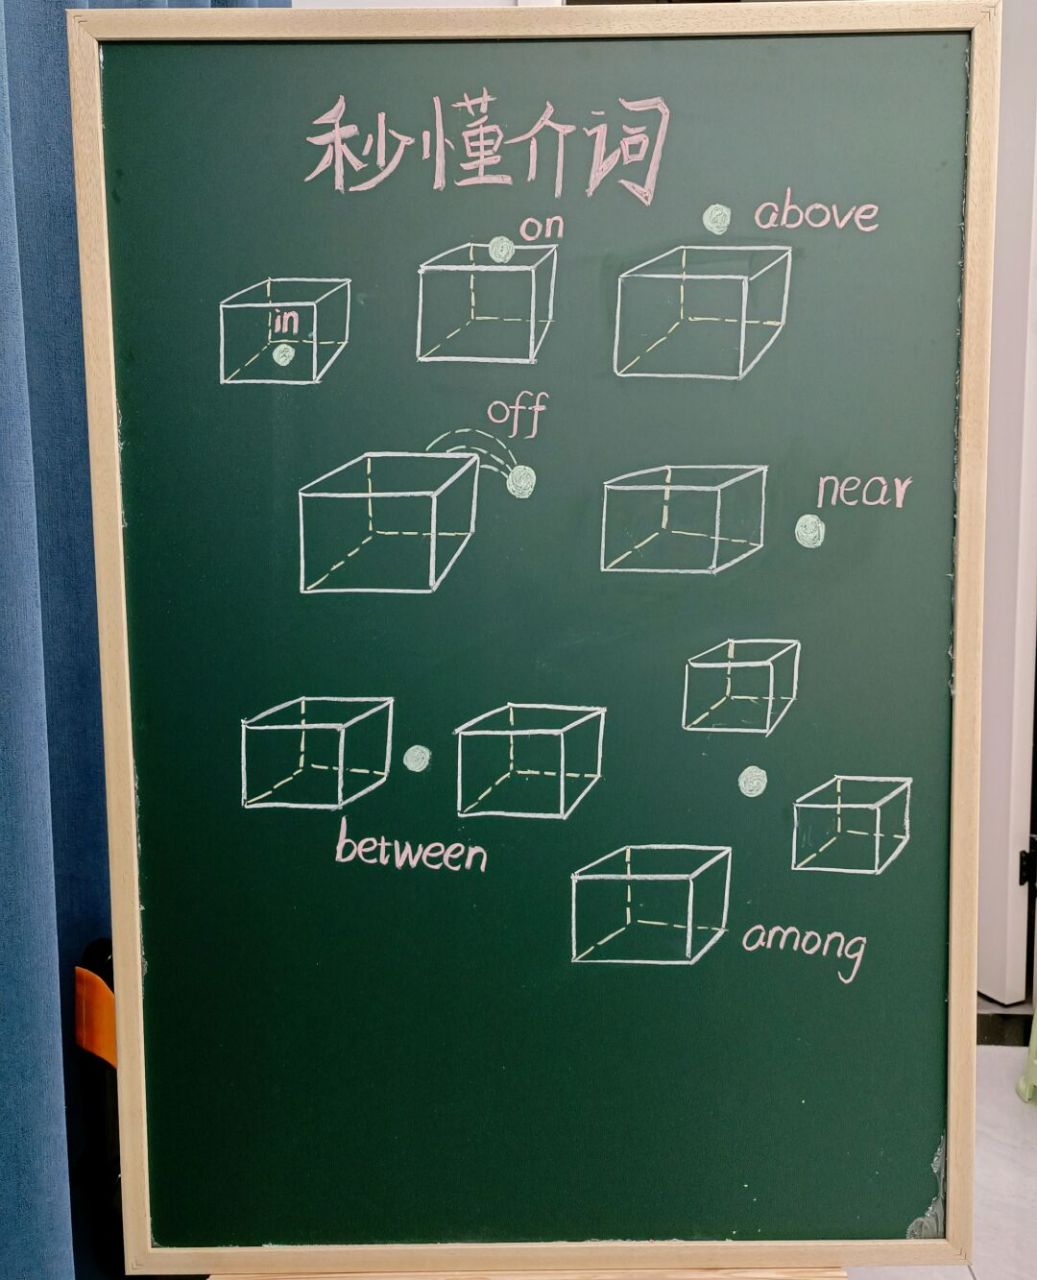 秒懂介词
in
on
above
off
near
between
among